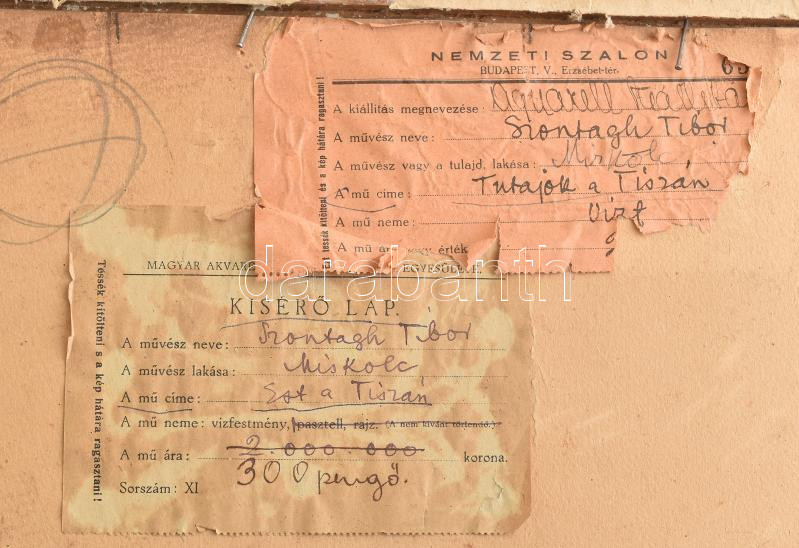 NEMZETI SZALON
BUDAPEST, V., Erzsébet-tér.
Tessék kitölteni és a kép hátára ragasztani!
A kiállítás megnevezése: Aquarell
A művész neve: Szontagh Tibor
A művész vagy a tulajd. lakása: Miskolc
A mű címe: Tutajok a Tiszán
A mű neme: Vizf
A mű ára vagy érték
MAGYAR AKVARE EGYESÜLE
KISÉRŐ LAP.
Tessék kitölteni s a kép hátára ragasztani!
A művész neve: Szontagh Tibor
A művész lakása: Miskolc
A mű címe: Est a Tiszán
A mű neme: vizfestmény, pasztell, rajz. (A nem kívánt törlendő.)
A mű ára: 2.000.000 korona.
300 pengő.
Sorszám: XI
darabanth